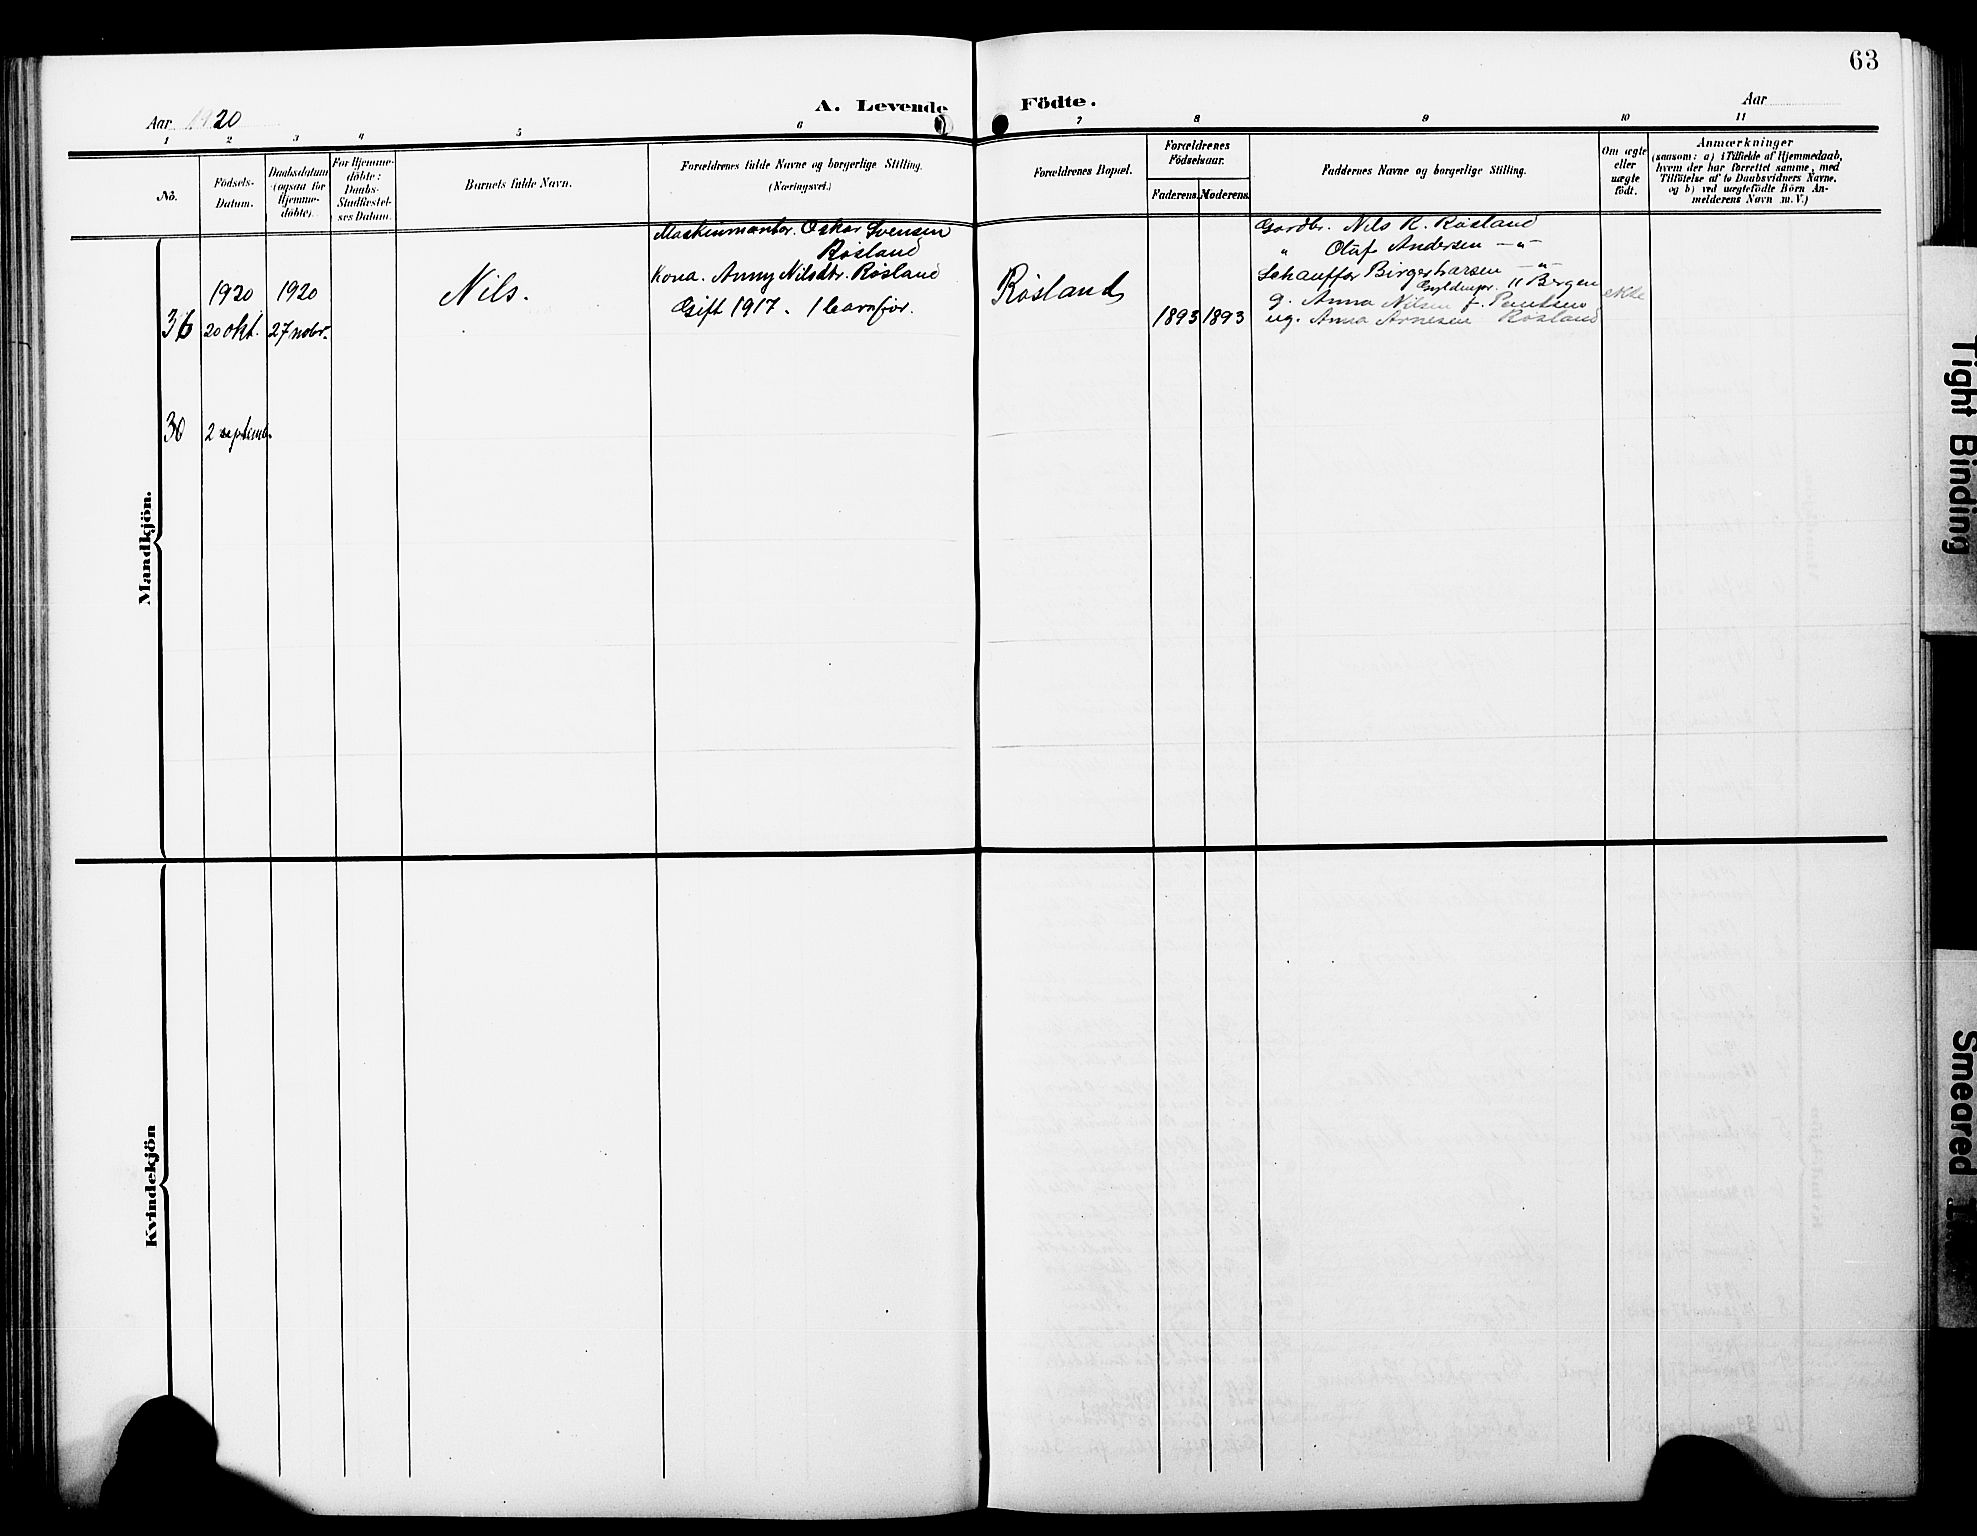 63
A. Levende Födte.
Aar 1920
Aar
1 2 3 4 5 6 7 8 9 10 11
No.
Födsels-
Datum.
Daabsdatum
(ogsaa for
Hjemme-
döbte).
For Hjemme-
döbte:
Daabs-
Stadfæstel-
ses Datum.
Barnets fulde Navn.
Forældrenes fulde Navne og borgerlige Stilling.
(Næringsvei.)
Forældrenes Bopæl.
Forældrenes
Födselsaar.
Faderens. Moderens.
Faddernes Navne og borgerlige Stilling.
Om ægte
eller
uægte
født.
Anmærkninger
(saasom: a) i Tilfælde af Hjemmedaab,
hvem der har forrettet samme, med
Tilföielse af to Daabsvidners Navne,
og b) ved uægtefödte Börn An-
melderens Navn m. V.)
Mandkjön.
36
1920
20 okt.
1920
27 nobr.
Nils.
Maskinmontør. Oskar Svensen
Røsland
Kona. Anny Nilsdtr. Røsland
Gift 1917. 1 barn før.
Røsland
1893 1893
Gardbr. Nils K. Røsland
" Olaf Andersen —"—
Schauffør Birger Larsen —"—
Gyldenpr. 11 Bergen
g. Anna Nilsen f. Knutsen
ug. Anna Arnesen Røsland
ekte
30
2 septemb.
Kvindekjön
Tight Binding
Smeared